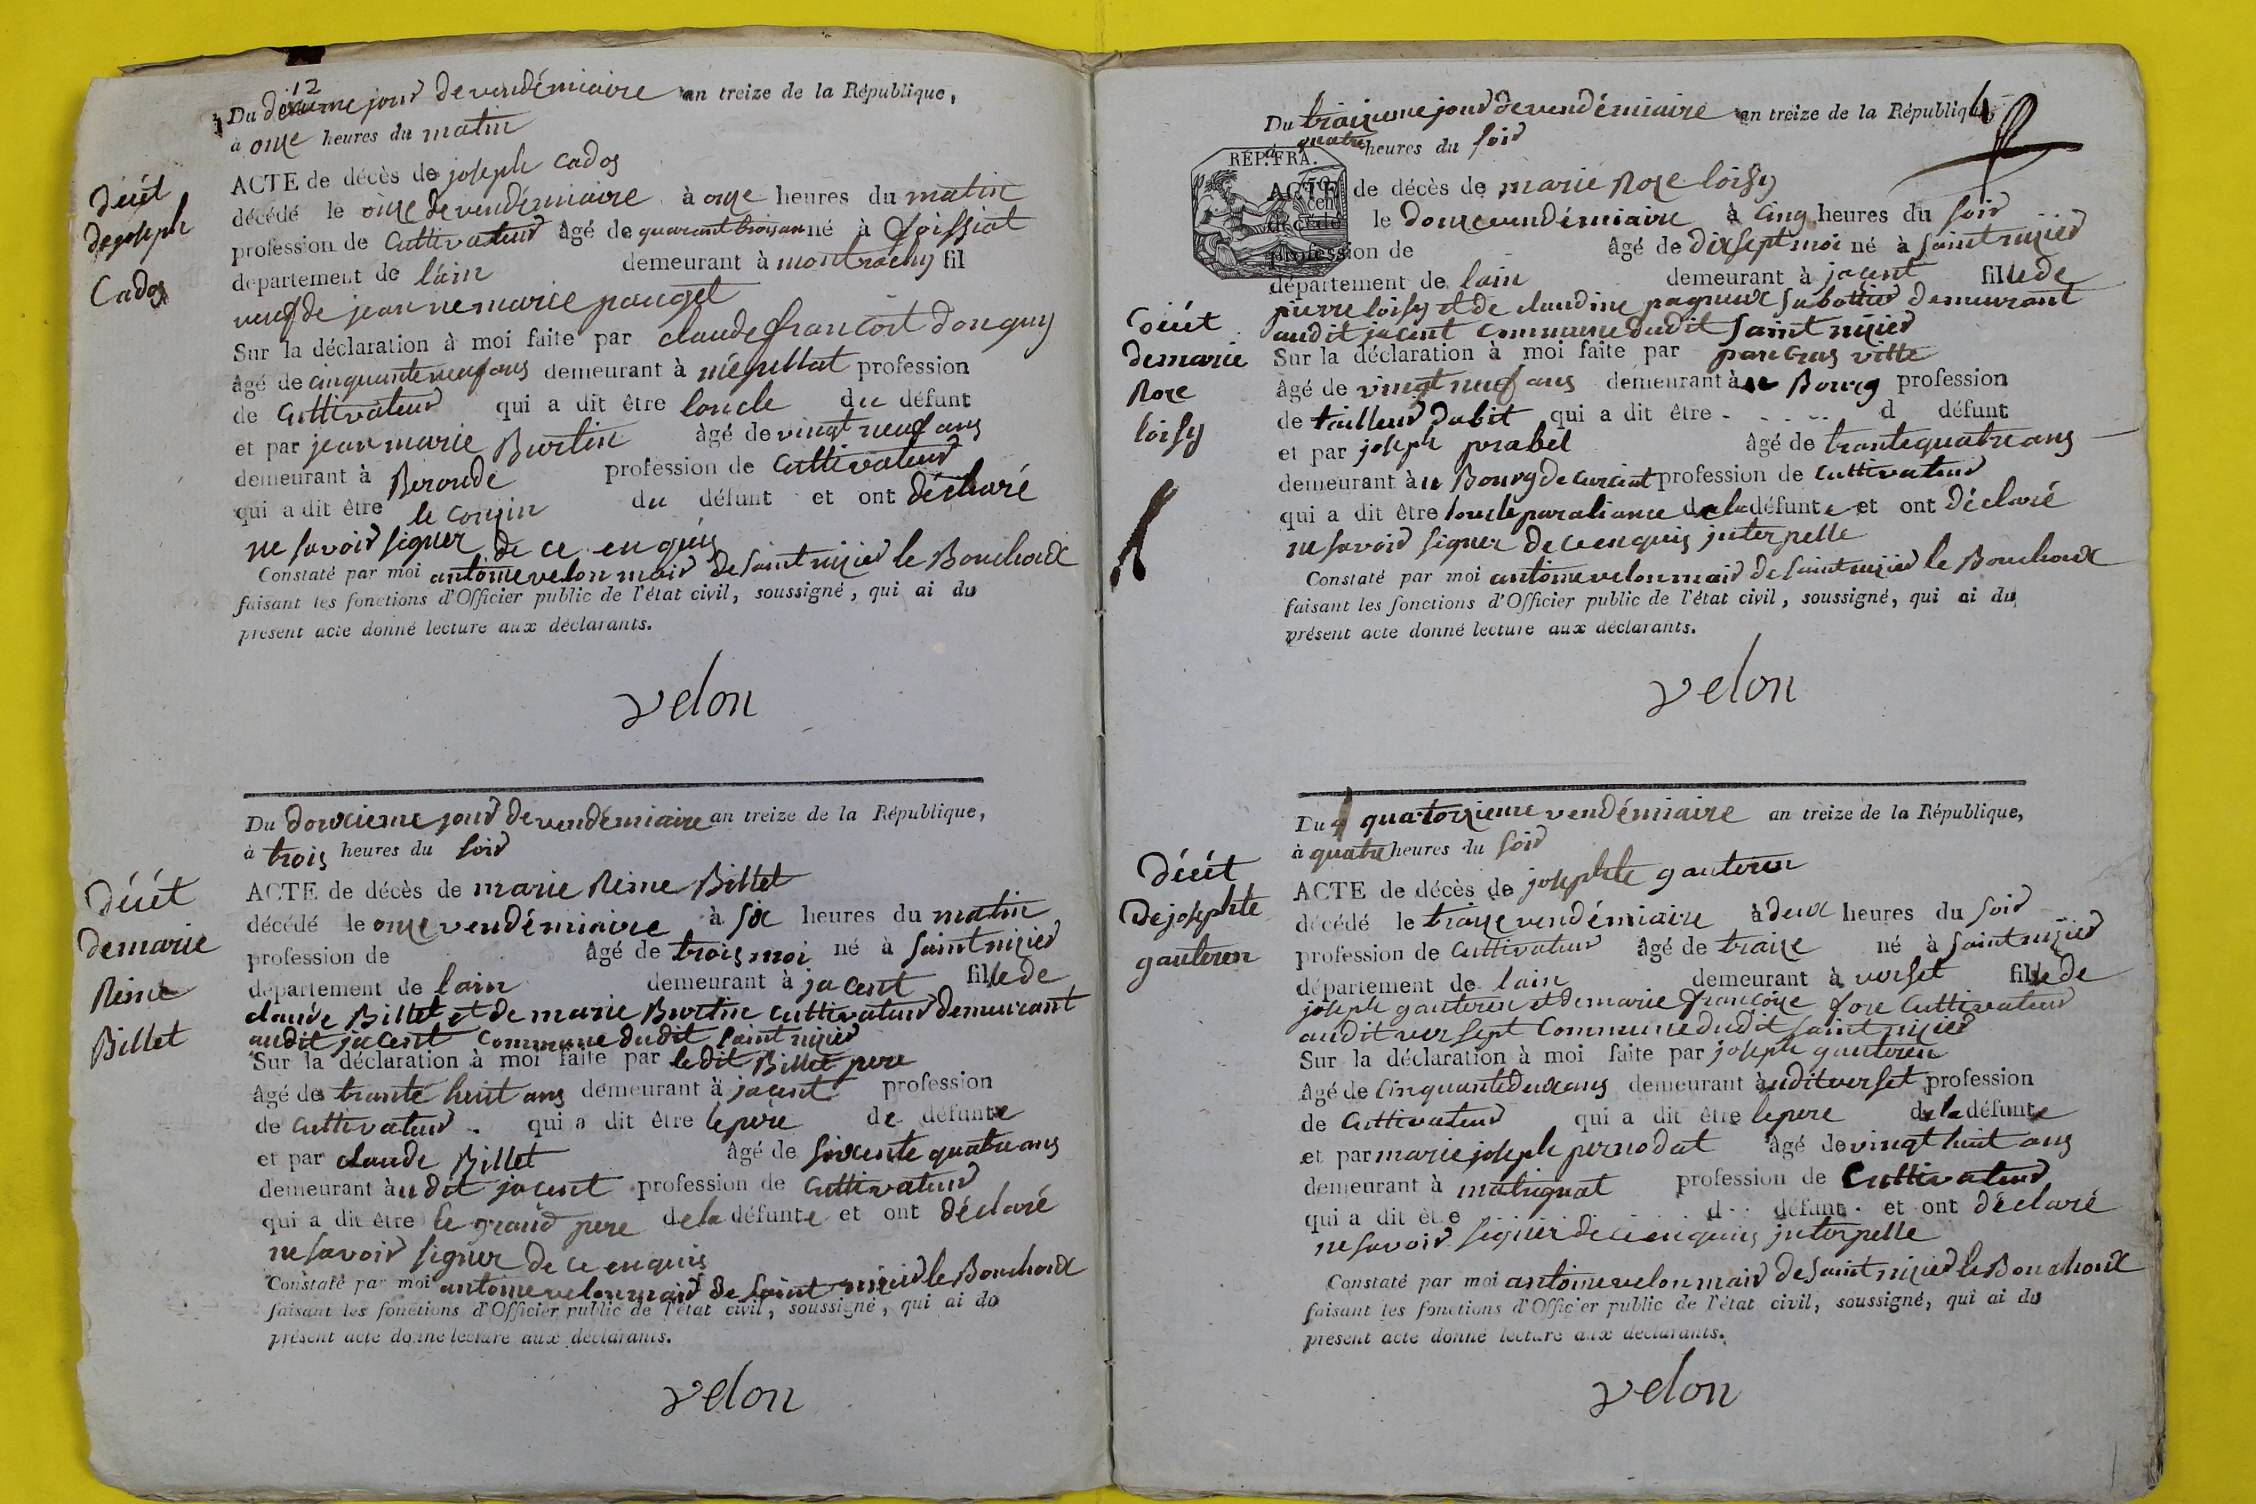 12
Du douxieme jour de vendémiaire an treize de la République,
à onze heures du matin
décét
de joseph
Cados
ACTE de décès de joseph Cados
décédé le onze de vendémiaire à onze heures du matin
profession de Cultivateur âgé de quarant trois an né à foissiat
département de l'ain demeurant à montrachy fil
veuf de jeanne marie pauget
Sur la déclaration à moi faite par claude françoit donguy
âgé de cinquante neuf ans demeurant à mépillat profession
de Cultivateur qui a dit être loncle du défunt
et par jean marie Burtin âgé de vingt neuf ans
demeurant à Beronde profession de Cultivateur
qui a dit être le cousin du défunt et ont déclaré
ne savoir signer de ce enquis
Constaté par moi antoine velon mair de saint nizier le Bouchoux
faisant les fonctions d'Officier public de l'état civil, soussigné, qui ai du
présent acte donné lecture aux déclarants.
velon
Du douxcieme jour de vendémiaire an treize de la République,
à trois heures du soir
décét
de marie
Reine
Billet
ACTE de décès de marie Reine Billet
décédé le onze vendémiaire à six heures du matin
profession de âgé de trois moi né à saint nizier
département de lain demeurant à jacent fille de
claude Billet et de marie Burtin cultivateur demeurant
audit jacent Commune dudit saint nizier
Sur la déclaration à moi faite par ledit Billet pere
âgé de trante huit ans demeurant à jacent profession
de Cultivateur qui a dit être le pere de défunte
et par claude Billet âgé de soixente quatre ans
demeurant àudit jacent profession de Cultivateur
qui a dit être le grand pere de la défunte et ont déclaré
ne savoir signer de ce enquis
Constaté par moi antoine velon mair de saint nizier le Bouchoux
faisant les fonctions d'Officier public de l'état civil, soussigné, qui ai du
présent acte donné lecture aux déclarants.
velon
4
Du traizieme jour de vendémiaire an treize de la République
à quatre heures du soir
RÉP. FRA.
décét
de marie
Roze
loisy
ACTE de décès de marie Roze loisy
décédé le douze vendémiaire à Cinq heures du soir
profession de âgé de dix sept moi né à saint nizier
département de lain demeurant à jacent fille de
pierre loisy et de claudine pagneux sabottier demeurant
audit jacent Commune dudit saint nizier
Sur la déclaration à moi faite par pancras ville
âgé de vingt neuf ans demeurant àu Bourg profession
de tailleur dabit qui a dit être d défunt
et par joseph prabel âgé de trante quatre ans
demeurant àu Bourg de curciat profession de Cultivateur
qui a dit être loncle par aliance de la défunte et ont déclaré
ne savoir signer de ce enquis interpelle
Constaté par moi antoine velon mair de saint nizier le Bouchoux
faisant les fonctions d'Officier public de l'état civil, soussigné, qui ai du
présent acte donné lecture aux déclarants.
velon
Du quatorzieme vendémiaire an treize de la République,
à quatre heures du soir
décét
de josephte
gauteren
ACTE de décès de josephte gauteren
décédé le traize vendémiaire à deux heures du soir
profession de Cultivateur âgé de traize né à saint nizier
département de lain demeurant à verset fille de
joseph gauteren et de marie françoize foze Cultivateur
audit versept Commune dudit saint nizier
Sur la déclaration à moi faite par joseph gauteren
âgé de Cinquante deux ans demeurant àudit verset profession
de Cultivateur qui a dit être le pere de la défunte
et par marie joseph pernodat âgé de vingt huit ans
demeurant à malrignat profession de Cultivateur
qui a dit être d défunt et ont déclaré
ne savoir signer de ce enquis interpelle
Constaté par moi antoine velon mair de saint nizier le Bouchoux
faisant les fonctions d'Officier public de l'état civil, soussigné, qui ai du
présent acte donné lecture aux déclarants.
velon